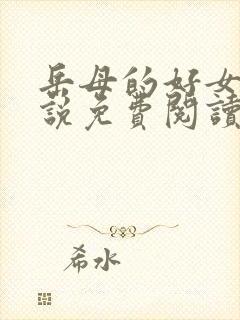 岳母的好女
說免費閱讀
希水